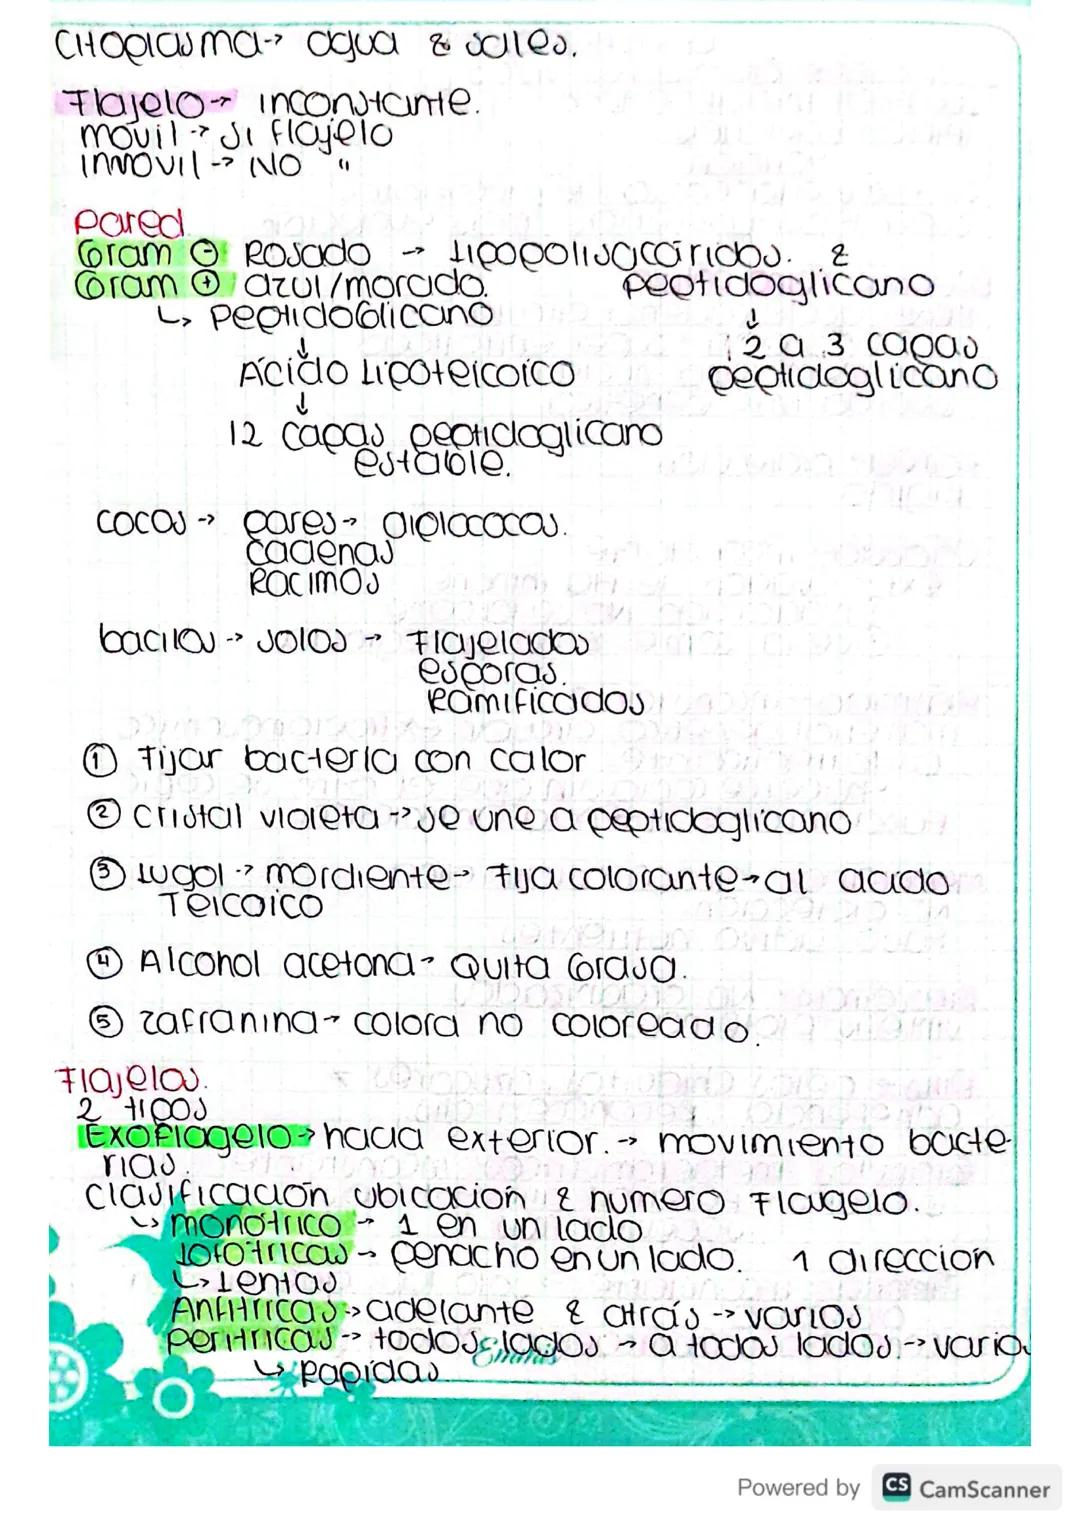 Citoplasma → agua & sales.
Flajelo → inconstante.
movil → si flajelo
inmovil → NO "
Pared
Gram ⊖ Rosado → lipopolisacáridos. &
Gram ⊕ azul/morado. peptidoglicano
↳ peptidoGlicano ↓
↓ 2 a 3 capas
Ácido Lipoteicoico peptidoglicano
↓
12 capas peptidoglicano
estable.
cocos → pares → diplococos.
cadenas
Racimos
bacilos → solos → Flajelados
esporas.
Ramificados
① Fijar bacteria con calor
② cristal violeta → se une a peptidoglicano
③ lugol → mordiente → Fija colorante → al acido
Teicoico
④ Alcohol acetona - Quita Grasa.
⑤ zafranina → colora no coloreado.
Flajelos.
2 tipos
Exoflagelo → hacia exterior. → movimiento bacte-
rias.
Clasificación ubicación & numero Flaugelo.
↳ monótrico → 1 en un lado
lofótricas → penacho en un lado. 1 direccion
↳ lentas
Anfitricas → adelante & atrás → varios
peritricas → todos lados → a todos lados → varios
↳ Rapidas
Powered by CS CamScanner